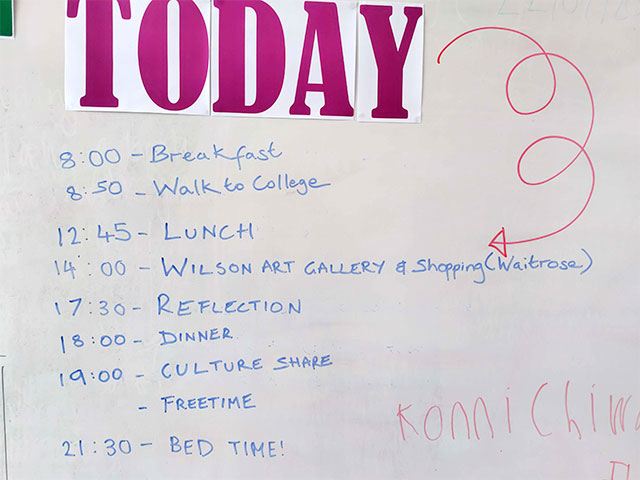 TODAY
8:00 - Breakfast
8:50 - Walk to College
12:45 - LUNCH
14:00 - WILSON ART GALLERY & Shopping (Waitrose)
17:30 - REFLECTION
18:00 - DINNER
19:00 - CULTURE SHARE
- FREETIME
21:30 - BED TIME!